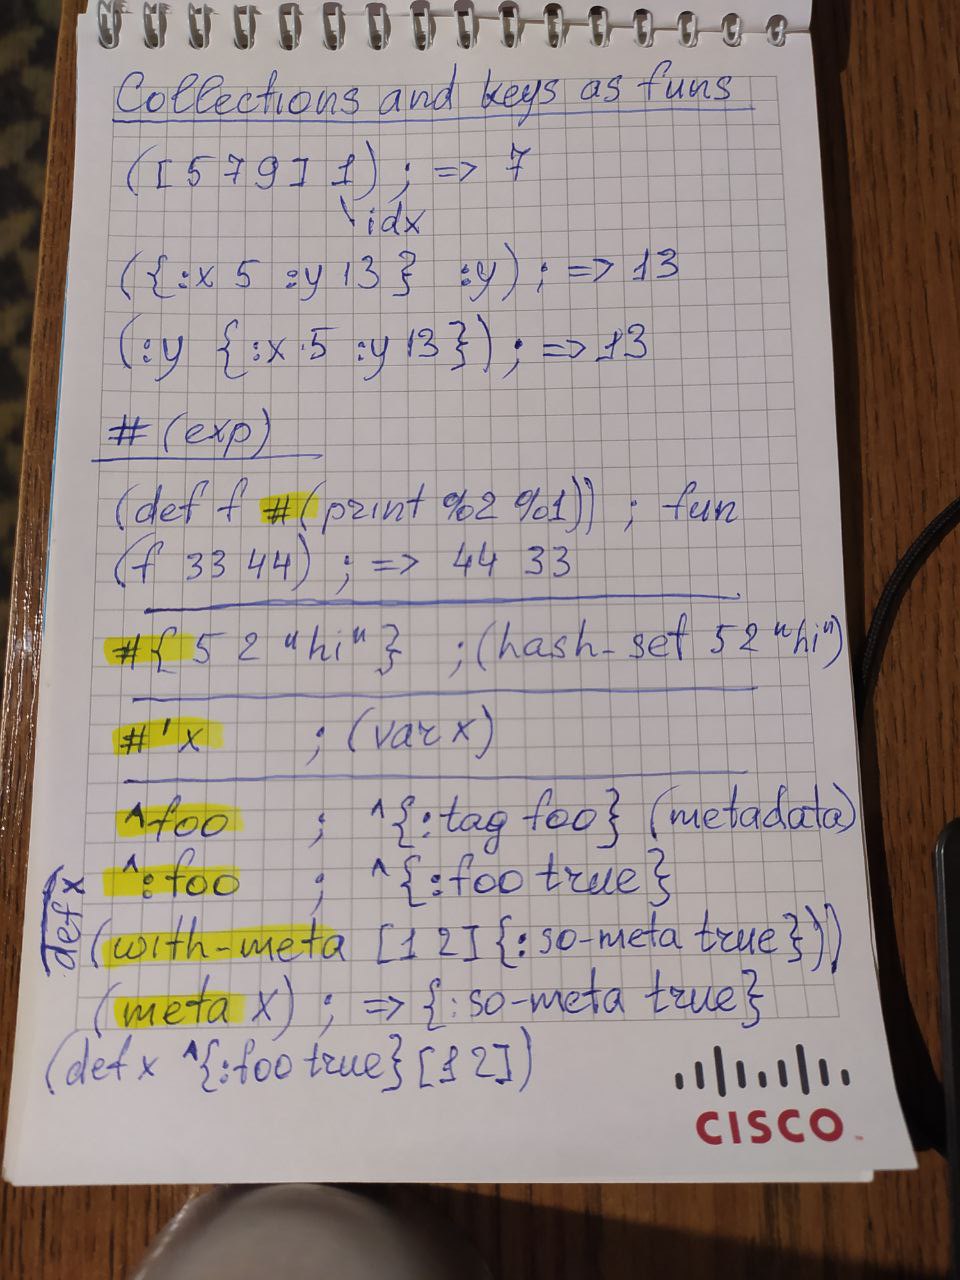 Collections and keys as funs
([5 7 9] 1) ; => 7
idx
({:x 5 :y 13} :y) ; => 13
(:y {:x 5 :y 13}) ; => 13
#(exp)
(def f #(print %2 %1)) ; fun
(f 33 44) ; => 44 33
#{ 5 2 "hi" } ; (hash-set 5 2 "hi")
#'x ; (var x)
^foo ; ^{:tag foo} (metadata)
^:foo ; ^{:foo true}
def x
(with-meta [1 2] {:so-meta true}))
(meta x) ; => {:so-meta true}
(def x ^{:foo true} [1 2])
CISCO